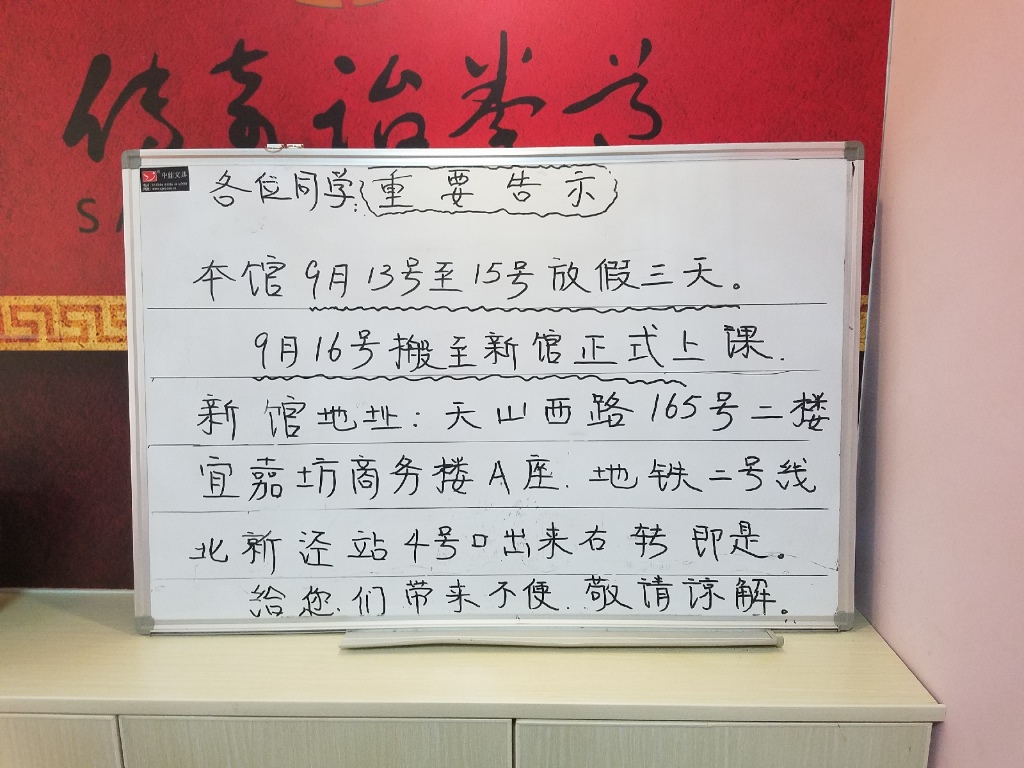 各位同学: 重要告示
本馆9月13号至15号放假三天。
9月16号搬至新馆正式上课.
新馆地址: 天山西路165号二楼
宜嘉坊商务楼A座. 地铁二号线
北新泾站4号口出来右转即是。
给您们带来不便.敬请谅解。